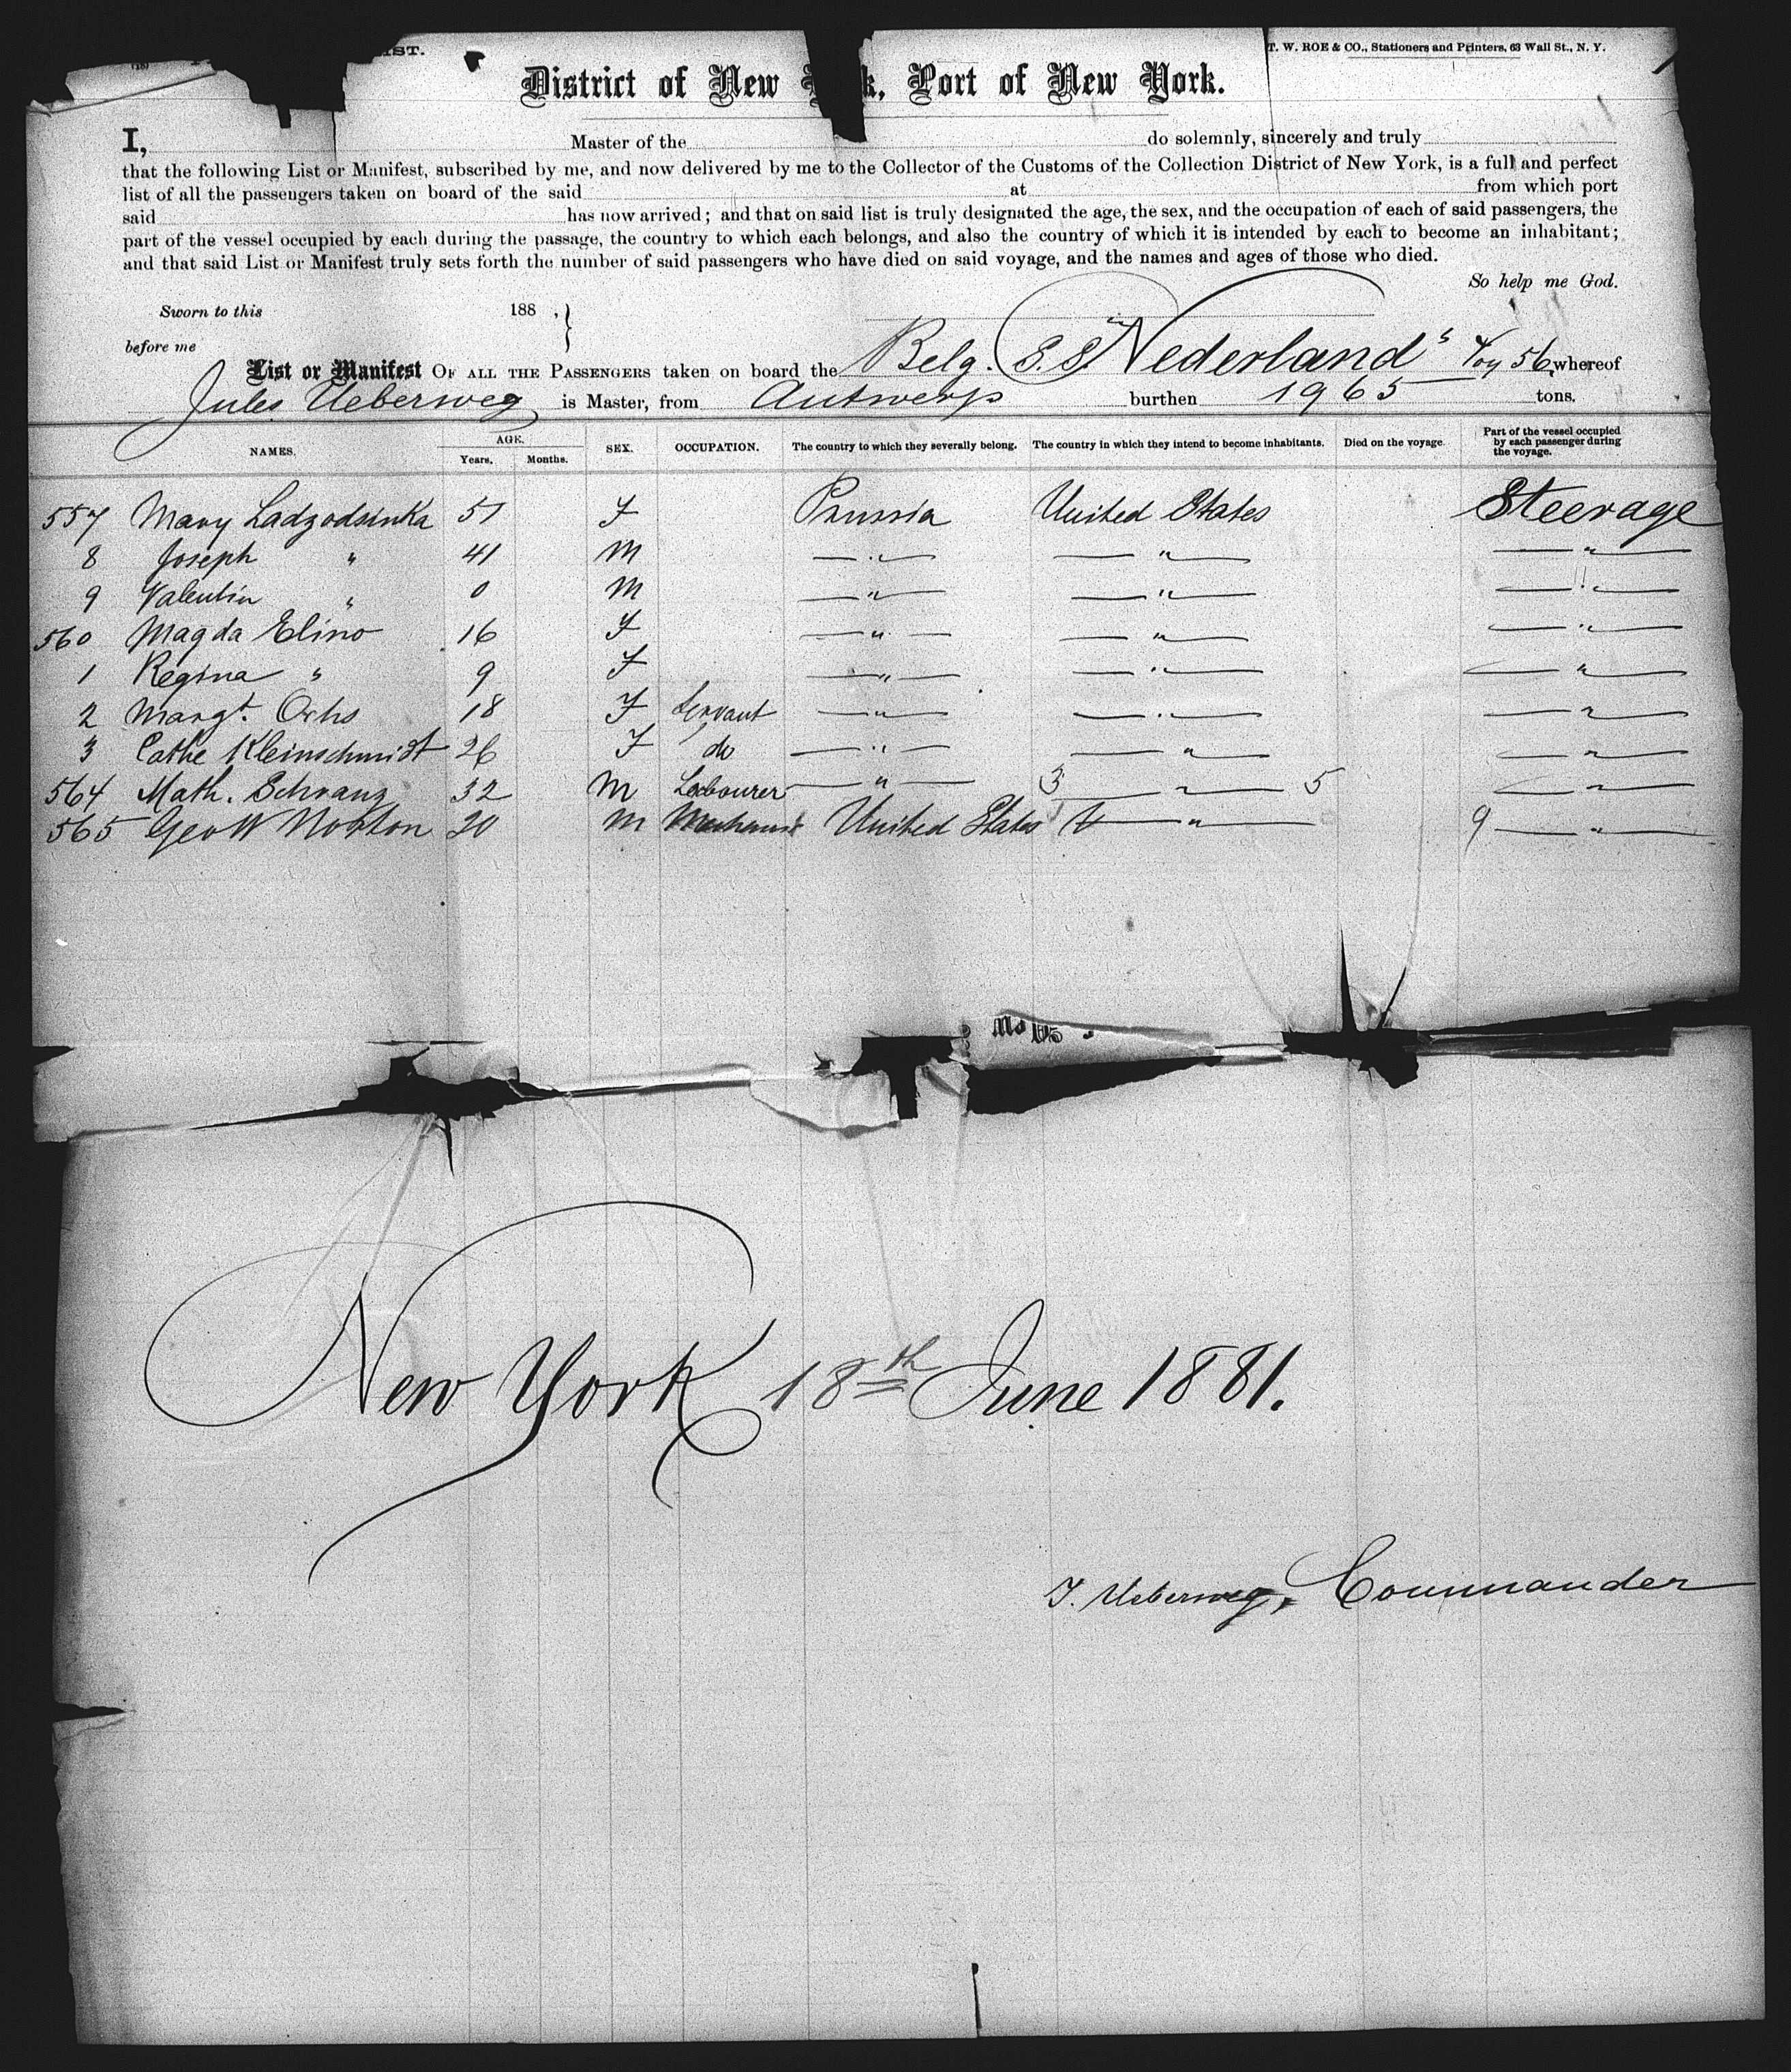 IST.
T. W. ROE & CO., Stationers and Printers, 63 Wall St., N. Y.
District of New k, Port of New York.
I, Master of the do solemnly, sincerely and truly
that the following List or Manifest, subscribed by me, and now delivered by me to the Collector of the Customs of the Collection District of New York, is a full and perfect
list of all the passengers taken on board of the said at from which port
said has now arrived; and that on said list is truly designated the age, the sex, and the occupation of each of said passengers, the
part of the vessel occupied by each during the passage, the country to which each belongs, and also the country of which it is intended by each to become an inhabitant;
and that said List or Manifest truly sets forth the number of said passengers who have died on said voyage, and the names and ages of those who died.
So help me God.
Sworn to this 188 , }
before me
List or Manifest OF ALL THE PASSENGERS taken on board the Belg. S.S. "Nederland" Voy 56, whereof
Jules Ueberweg is Master, from Antwerp burthen 1965 tons.
NAMES. AGE. Years. Months. SEX. OCCUPATION. The country to which they severally belong. The country in which they intend to become inhabitants. Died on the voyage. Part of the vessel occupied by each passenger during the voyage.
557 Mary Ladzodsinka 51 F Prussia United States Steerage
8 Joseph " 41 M " " "
9 Valentin " 0 M " " "
560 Magda Elino 16 F " " "
1 Regina " 9 F " " "
2 Margt. Ochs 18 F Servant " " "
3 Cathe Kleinschmidt 26 F do " " "
564 Math. Schranz 32 M Labourer " 3 " 5 "
565 Geo W Norton 20 M United States " 9 "
New York 18th June 1881.
J. Ueberweg, Commander